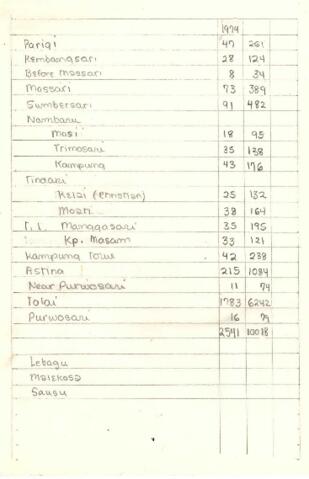 1974
Parigi 47 261
Kembangsari 28 124
Before Massari 8 34
Massari 73 389
Sumbersari 91 482
Nambaru
Masi 18 95
Trimosari 35 138
Kampung 43 176
Tindaki
(Christian) 25 132
38 164
T.I. Manggasari 35 195
Kp. Masam 33 121
Kampung 42 238
Astina 215 1084
Near Purwosari 11 74
Tolai 1783 6242
Purwosari 16 79
2541 10018
Lebagu
Malekosa
Sausu